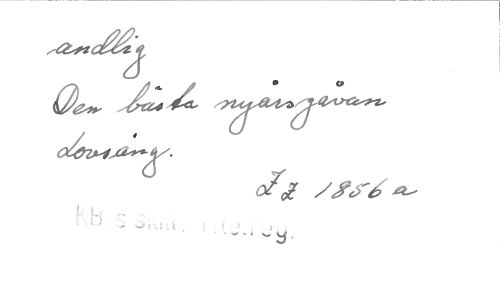 andlig
Den bästa nyårsgåvan
Lovsång.
1856 a
KB s